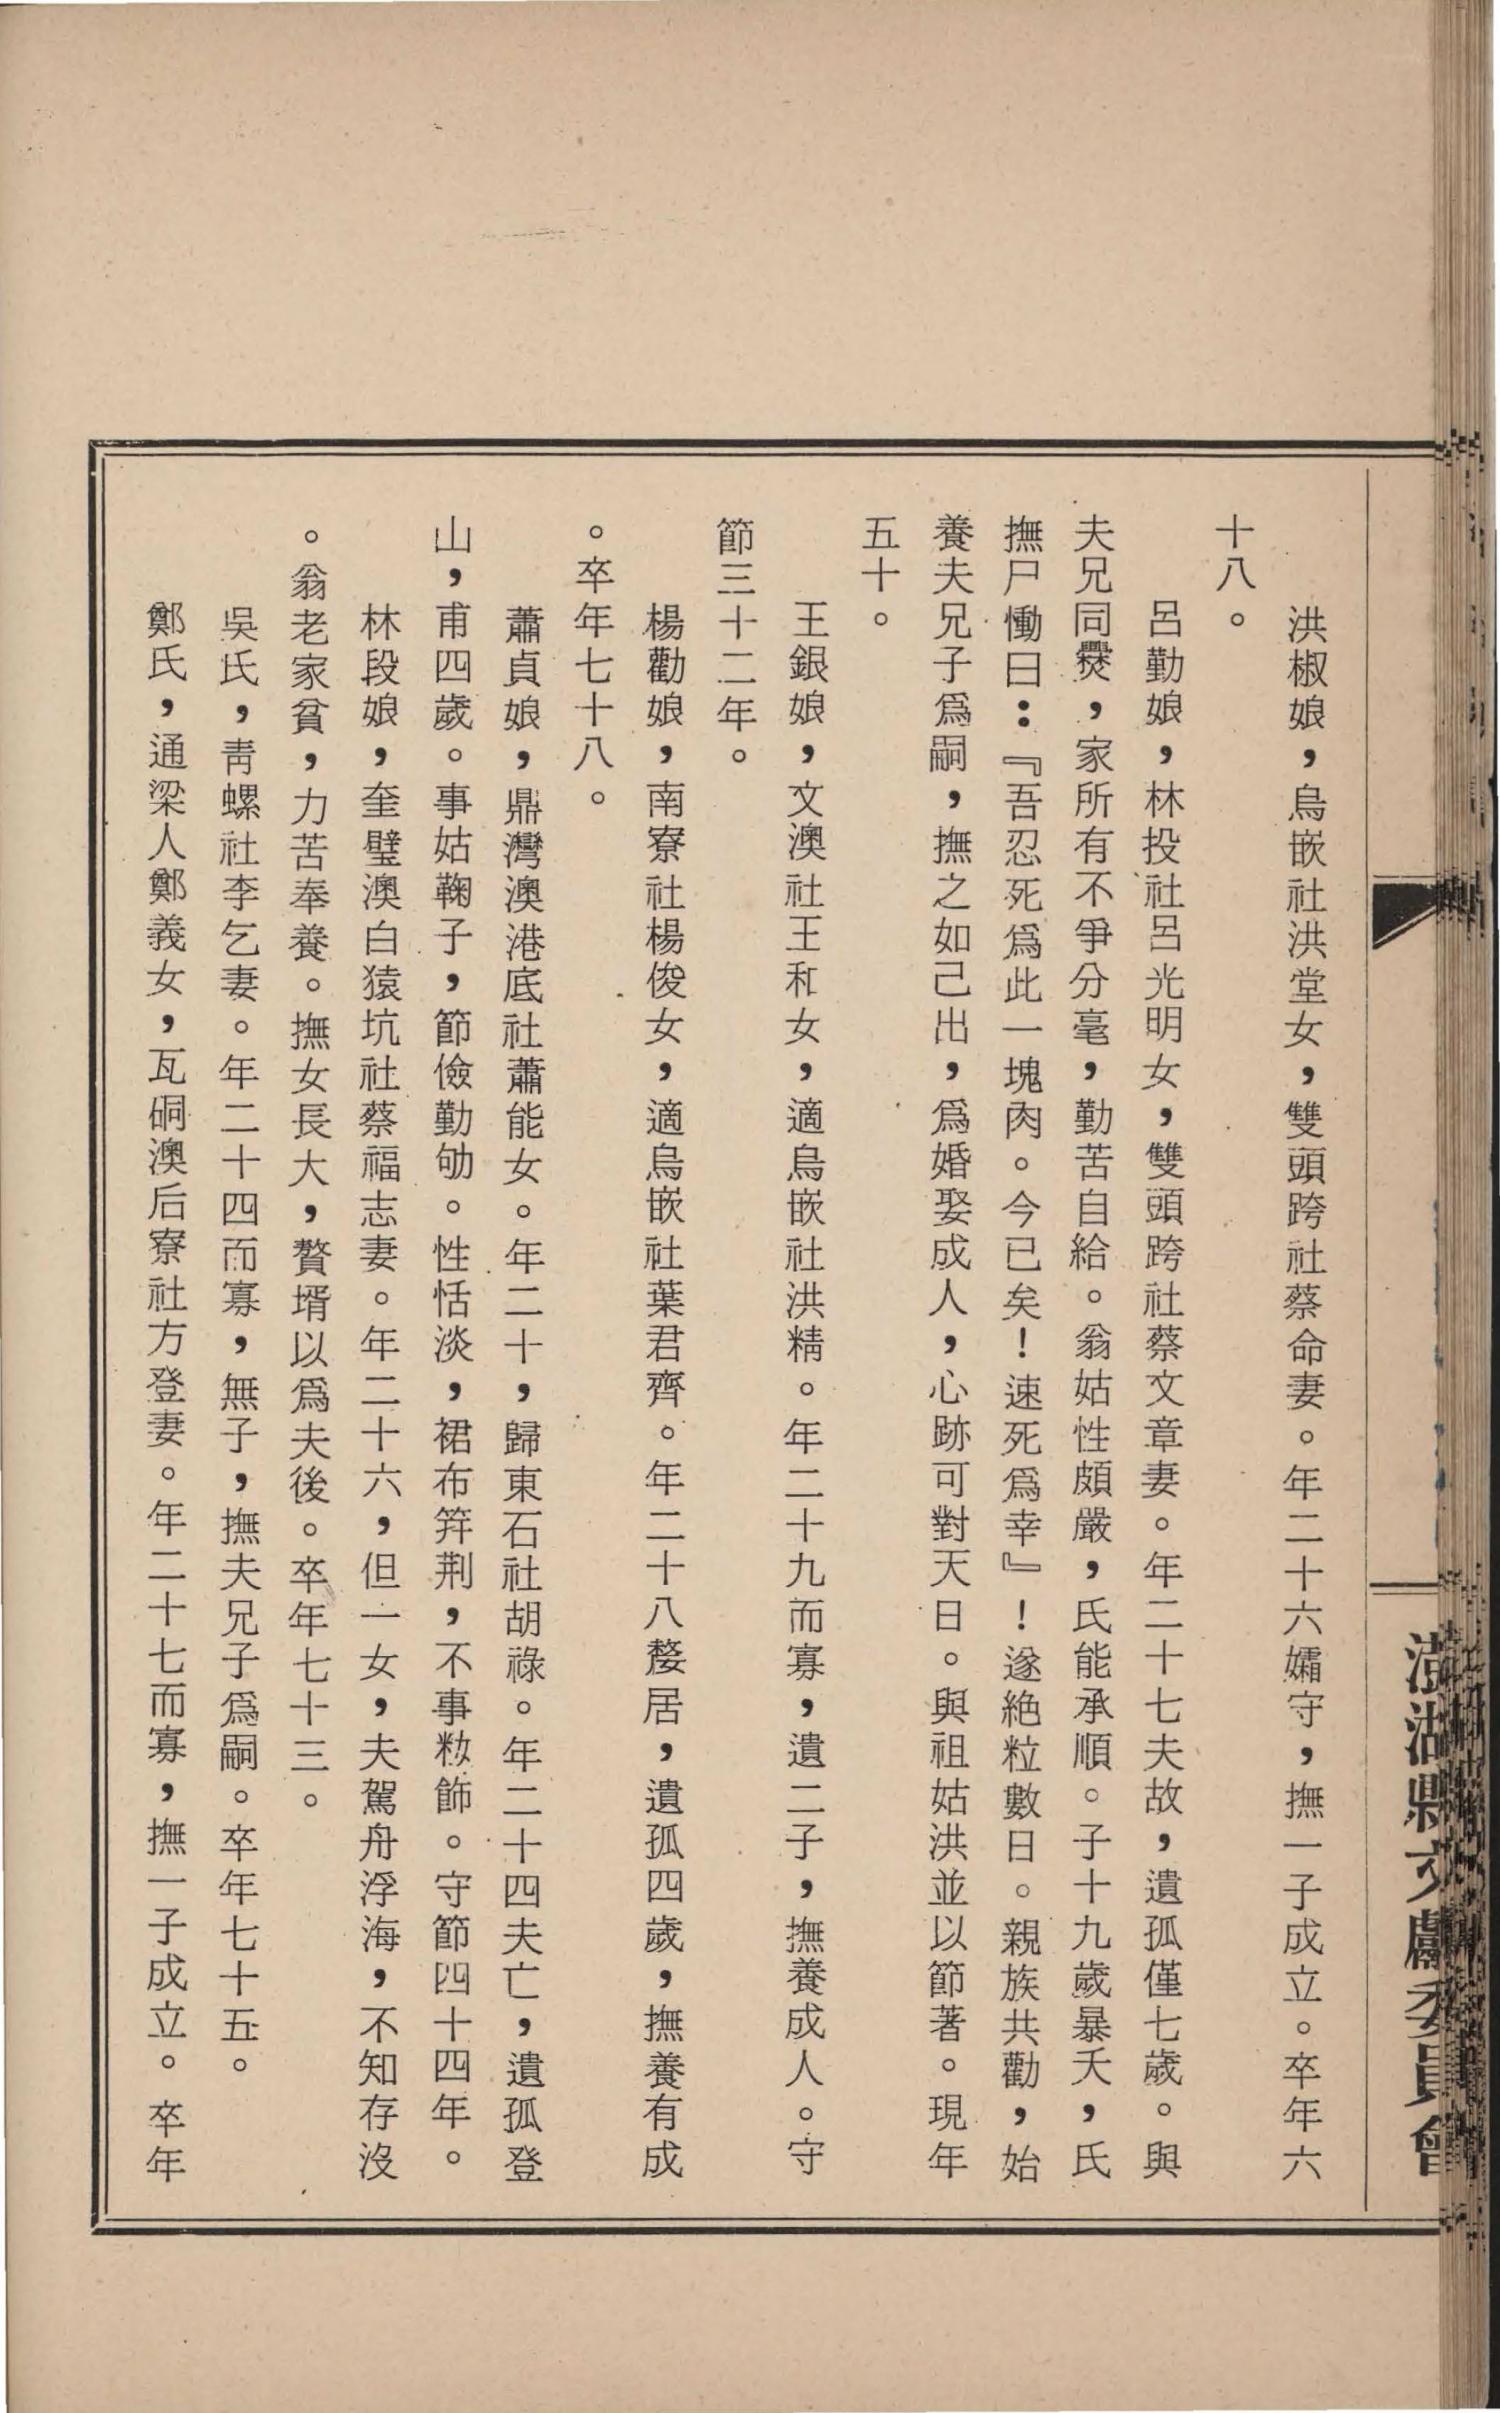 洪椒娘，烏嵌社洪堂女，雙頭跨社蔡命妻。年二十六孀守，撫一子成立。卒年六
十八。
呂勤娘，林投社呂光明女，雙頭跨社蔡文章妻。年二十七夫故，遺孤僅七歲。與
夫兄同爨，家所有不爭分毫，勤苦自給。翁姑性頗嚴，氏能承順。子十九歲暴夭，氏
撫尸慟曰：『吾忍死爲此一塊肉。今已矣！速死爲幸』！遂絕粒數日。親族共勸，始
養夫兄子爲嗣，撫之如己出，爲婚娶成人，心跡可對天日。與祖姑洪並以節著。現年
五十。
王銀娘，文澳社王和女，適烏嵌社洪精。年二十九而寡，遺二子，撫養成人。守
節三十二年。
楊勸娘，南寮社楊俊女，適烏嵌社葉君齊。年二十八嫠居，遺孤四歲，撫養有成
。卒年七十八。
蕭貞娘，鼎灣澳港底社蕭能女。年二十，歸東石社胡祿。年二十四夫亡，遺孤登
山，甫四歲。事姑鞠子，節儉勤劬。性恬淡，裙布笄荆，不事籹飾。守節四十四年。
林段娘，奎璧澳白猿坑社蔡福志妻。年二十六，但一女，夫駕舟浮海，不知存沒
。翁老家貧，力苦奉養。撫女長大，贅壻以爲夫後。卒年七十三。
吳氏，靑螺社李乞妻。年二十四而寡，無子，撫夫兄子爲嗣。卒年七十五。
鄭氏，通梁人鄭義女，瓦硐澳后寮社方登妻。年二十七而寡，撫一子成立。卒年
澎湖縣文獻委員會